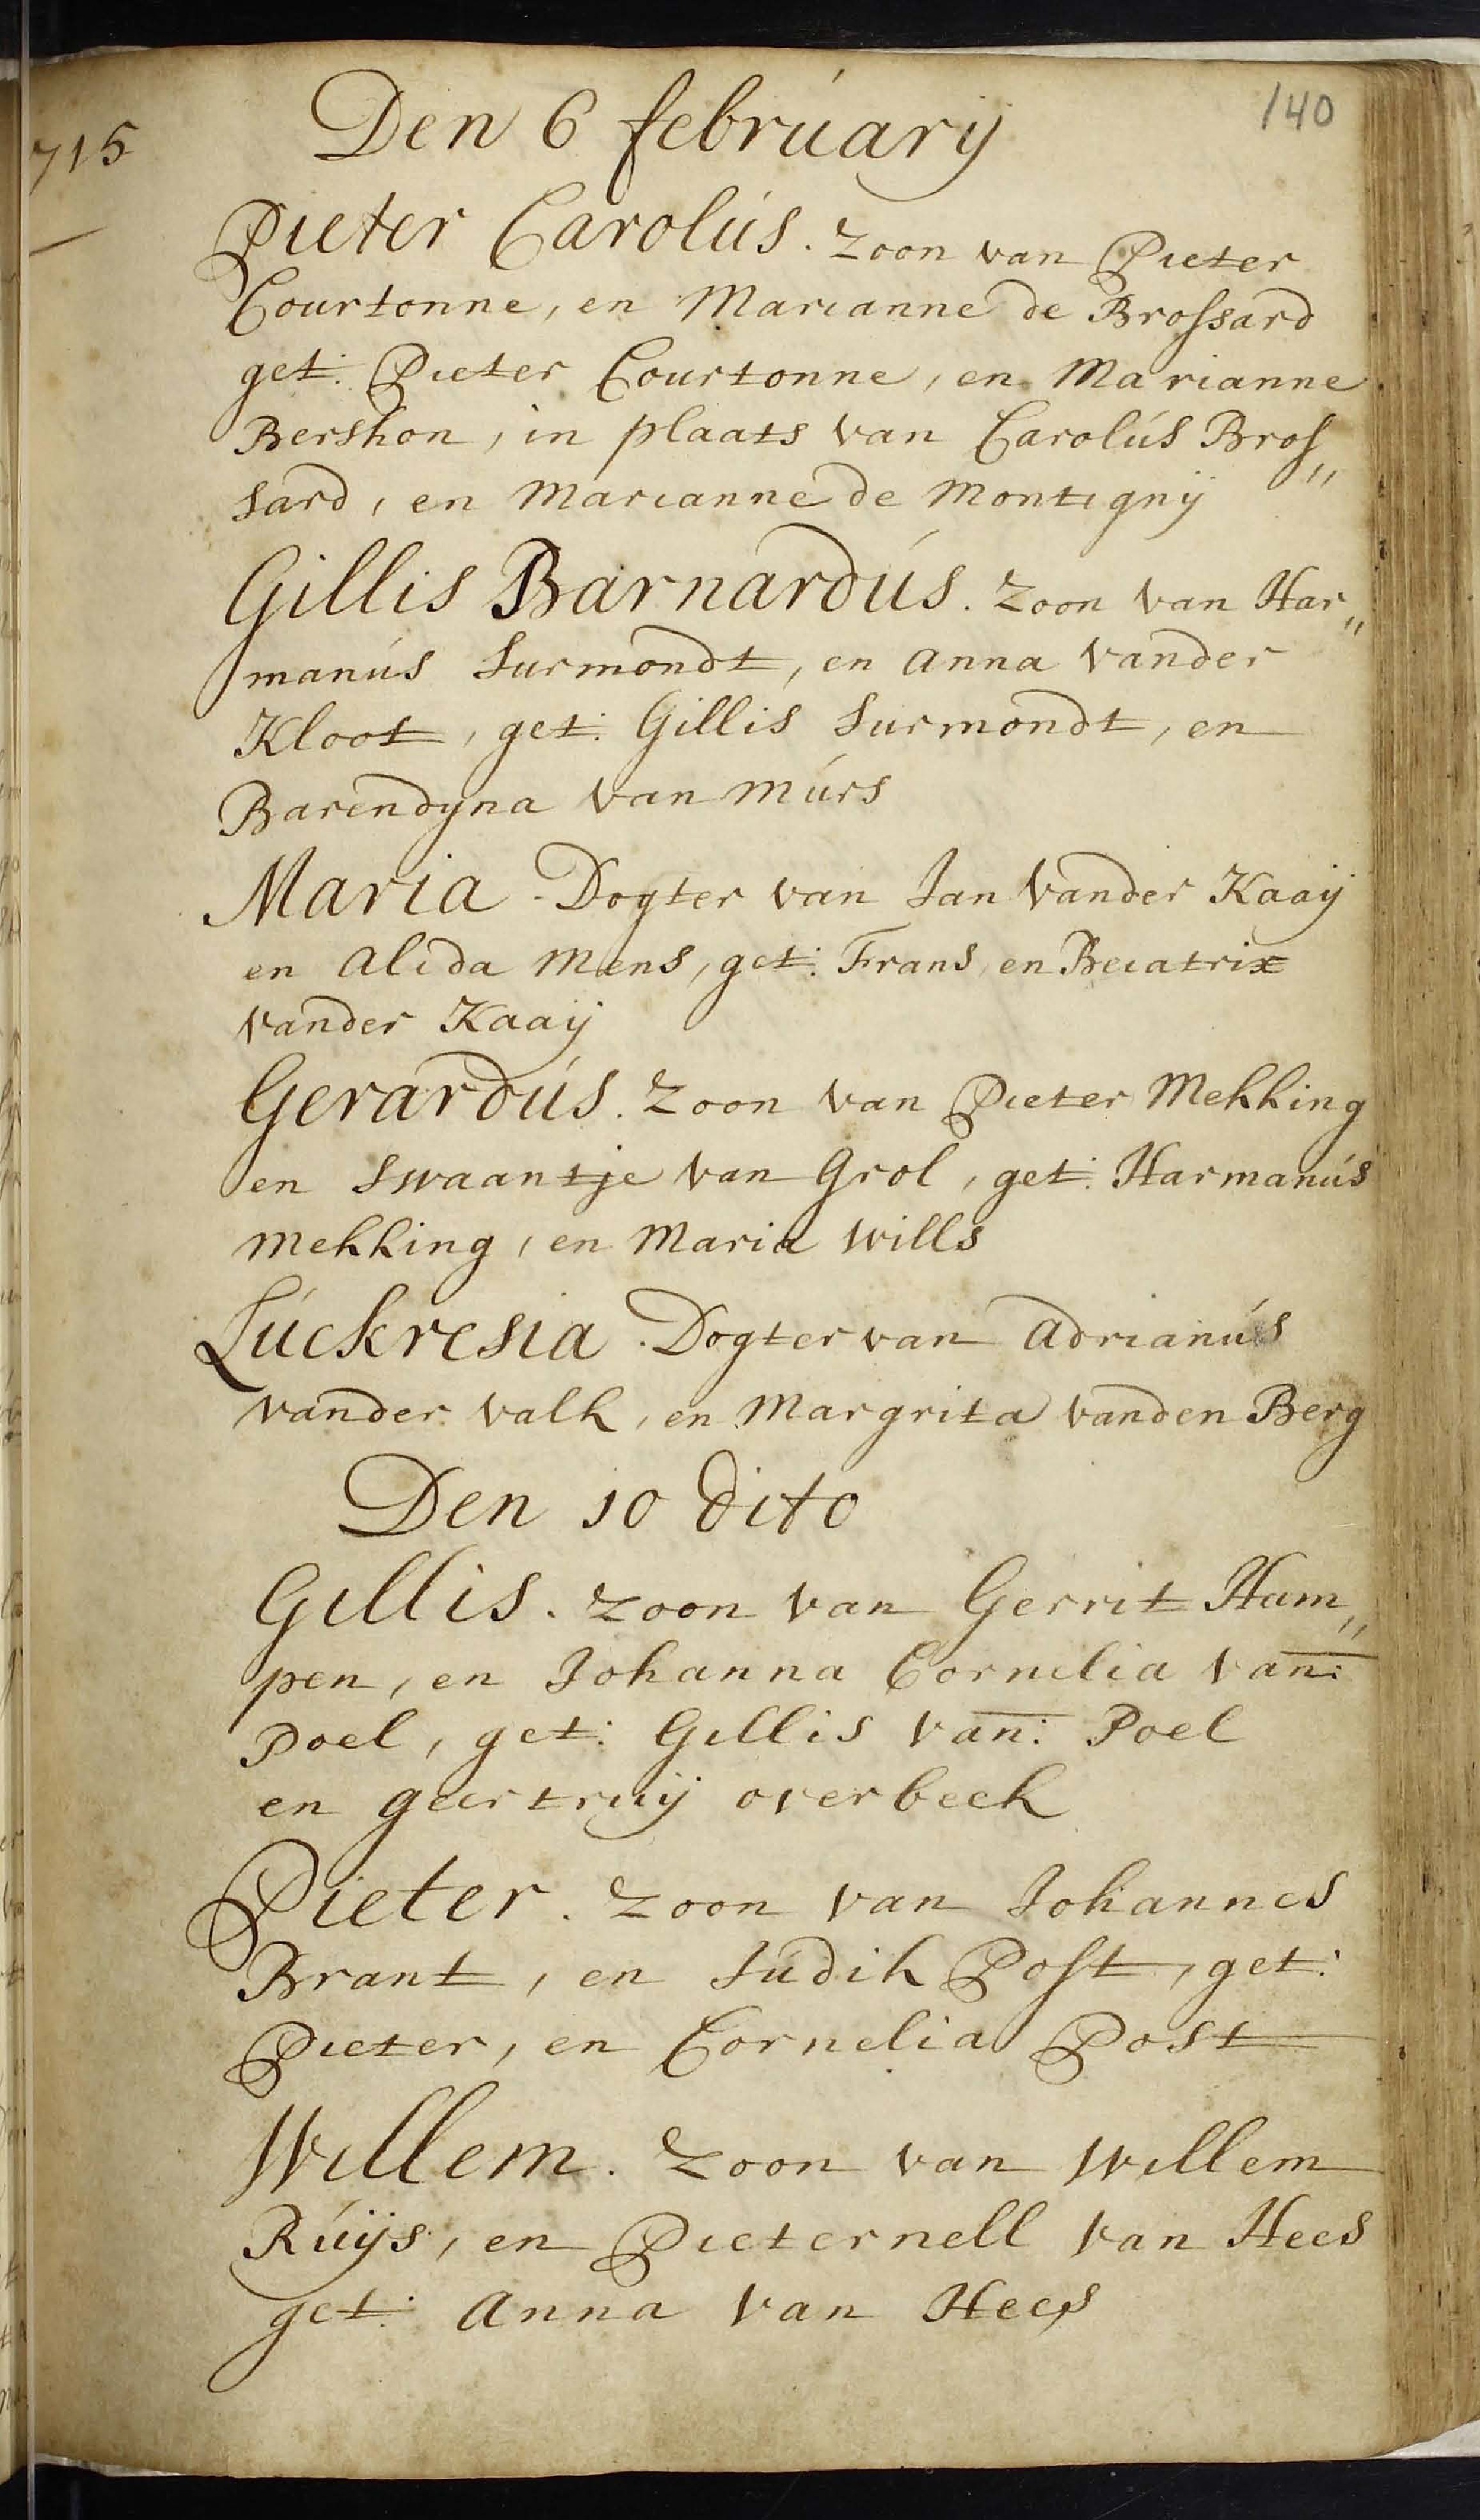 140
715
Den 6 februarij
Pieter Carolus. Zoon van Pieter
Courtonne, en Marianne de Brossard
get: Pieter Courtonne, en Marianne
Bershon, in plaats van Carolus Bros„
sard, en Marianne de Montignij
Gillis Barnardus. Zoon van Har„
manus Surmondt, en Anna vander
Kloot, get: Gillis Surmondt, en
Barendyna van Murs
Maria. Dogter van Jan vander Kaaij
en Alida Mens, get: Frans, en Beiatrix
vander Kaaij
Gerardus. Zoon van Pieter Mekking
en Swaantje van Grol, get: Harmanus
Mekking, en Maria Wills
Luckresia. Dogter van Adrianus
vander Valk, en Margrita vanden Berg
Den 10 dito
Gillis. Zoon van Gerrit Ham„
pen, en Johanna Cornelia van:
Poel, get: Gillis van: Poel
en geertruij overbeek
Pieter. Zoon van Johannes
Brant, en Judik Post, get:
Pieter, en Cornelia Post
Willem. Zoon van Willem
Ruijs, en Pieternell van Hees
get: Anna van Hees